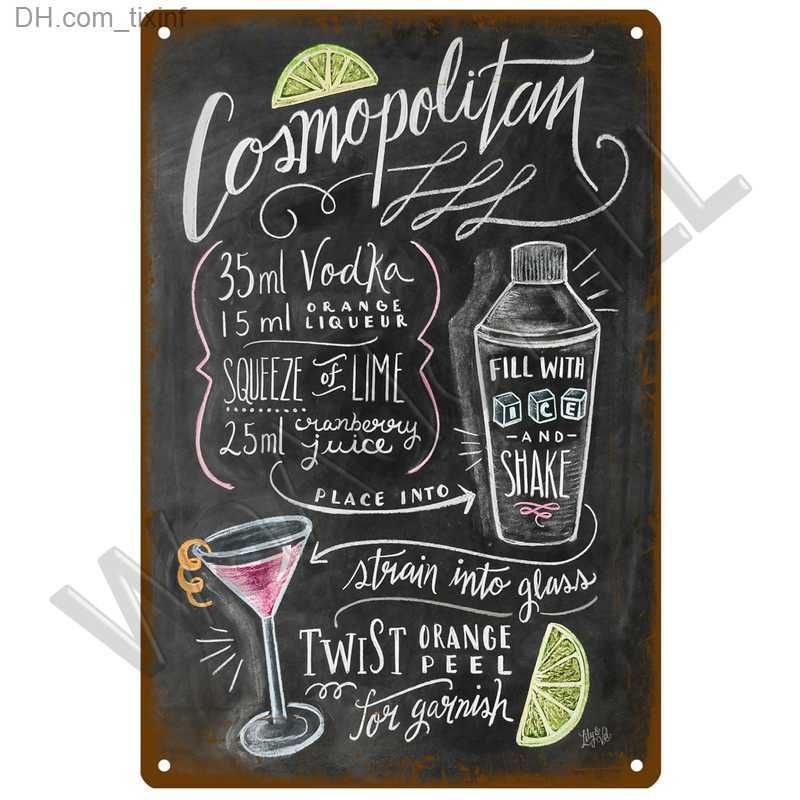 DH.com_tixinf
Cosmopolitan
35ml Vodka
15ml ORANGE
LIQUEUR
SQUEEZE of LIME
25ml cranberry
juice
PLACE INTO
FILL WITH
ICE
-AND-
SHAKE
strain into glass
TWIST ORANGE
PEEL
for garnish
Lily & Val